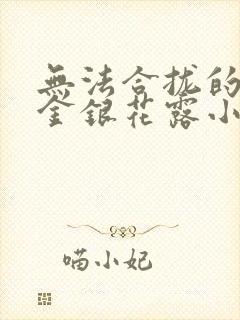 無法合拢的
金銀花露小
喵小妃